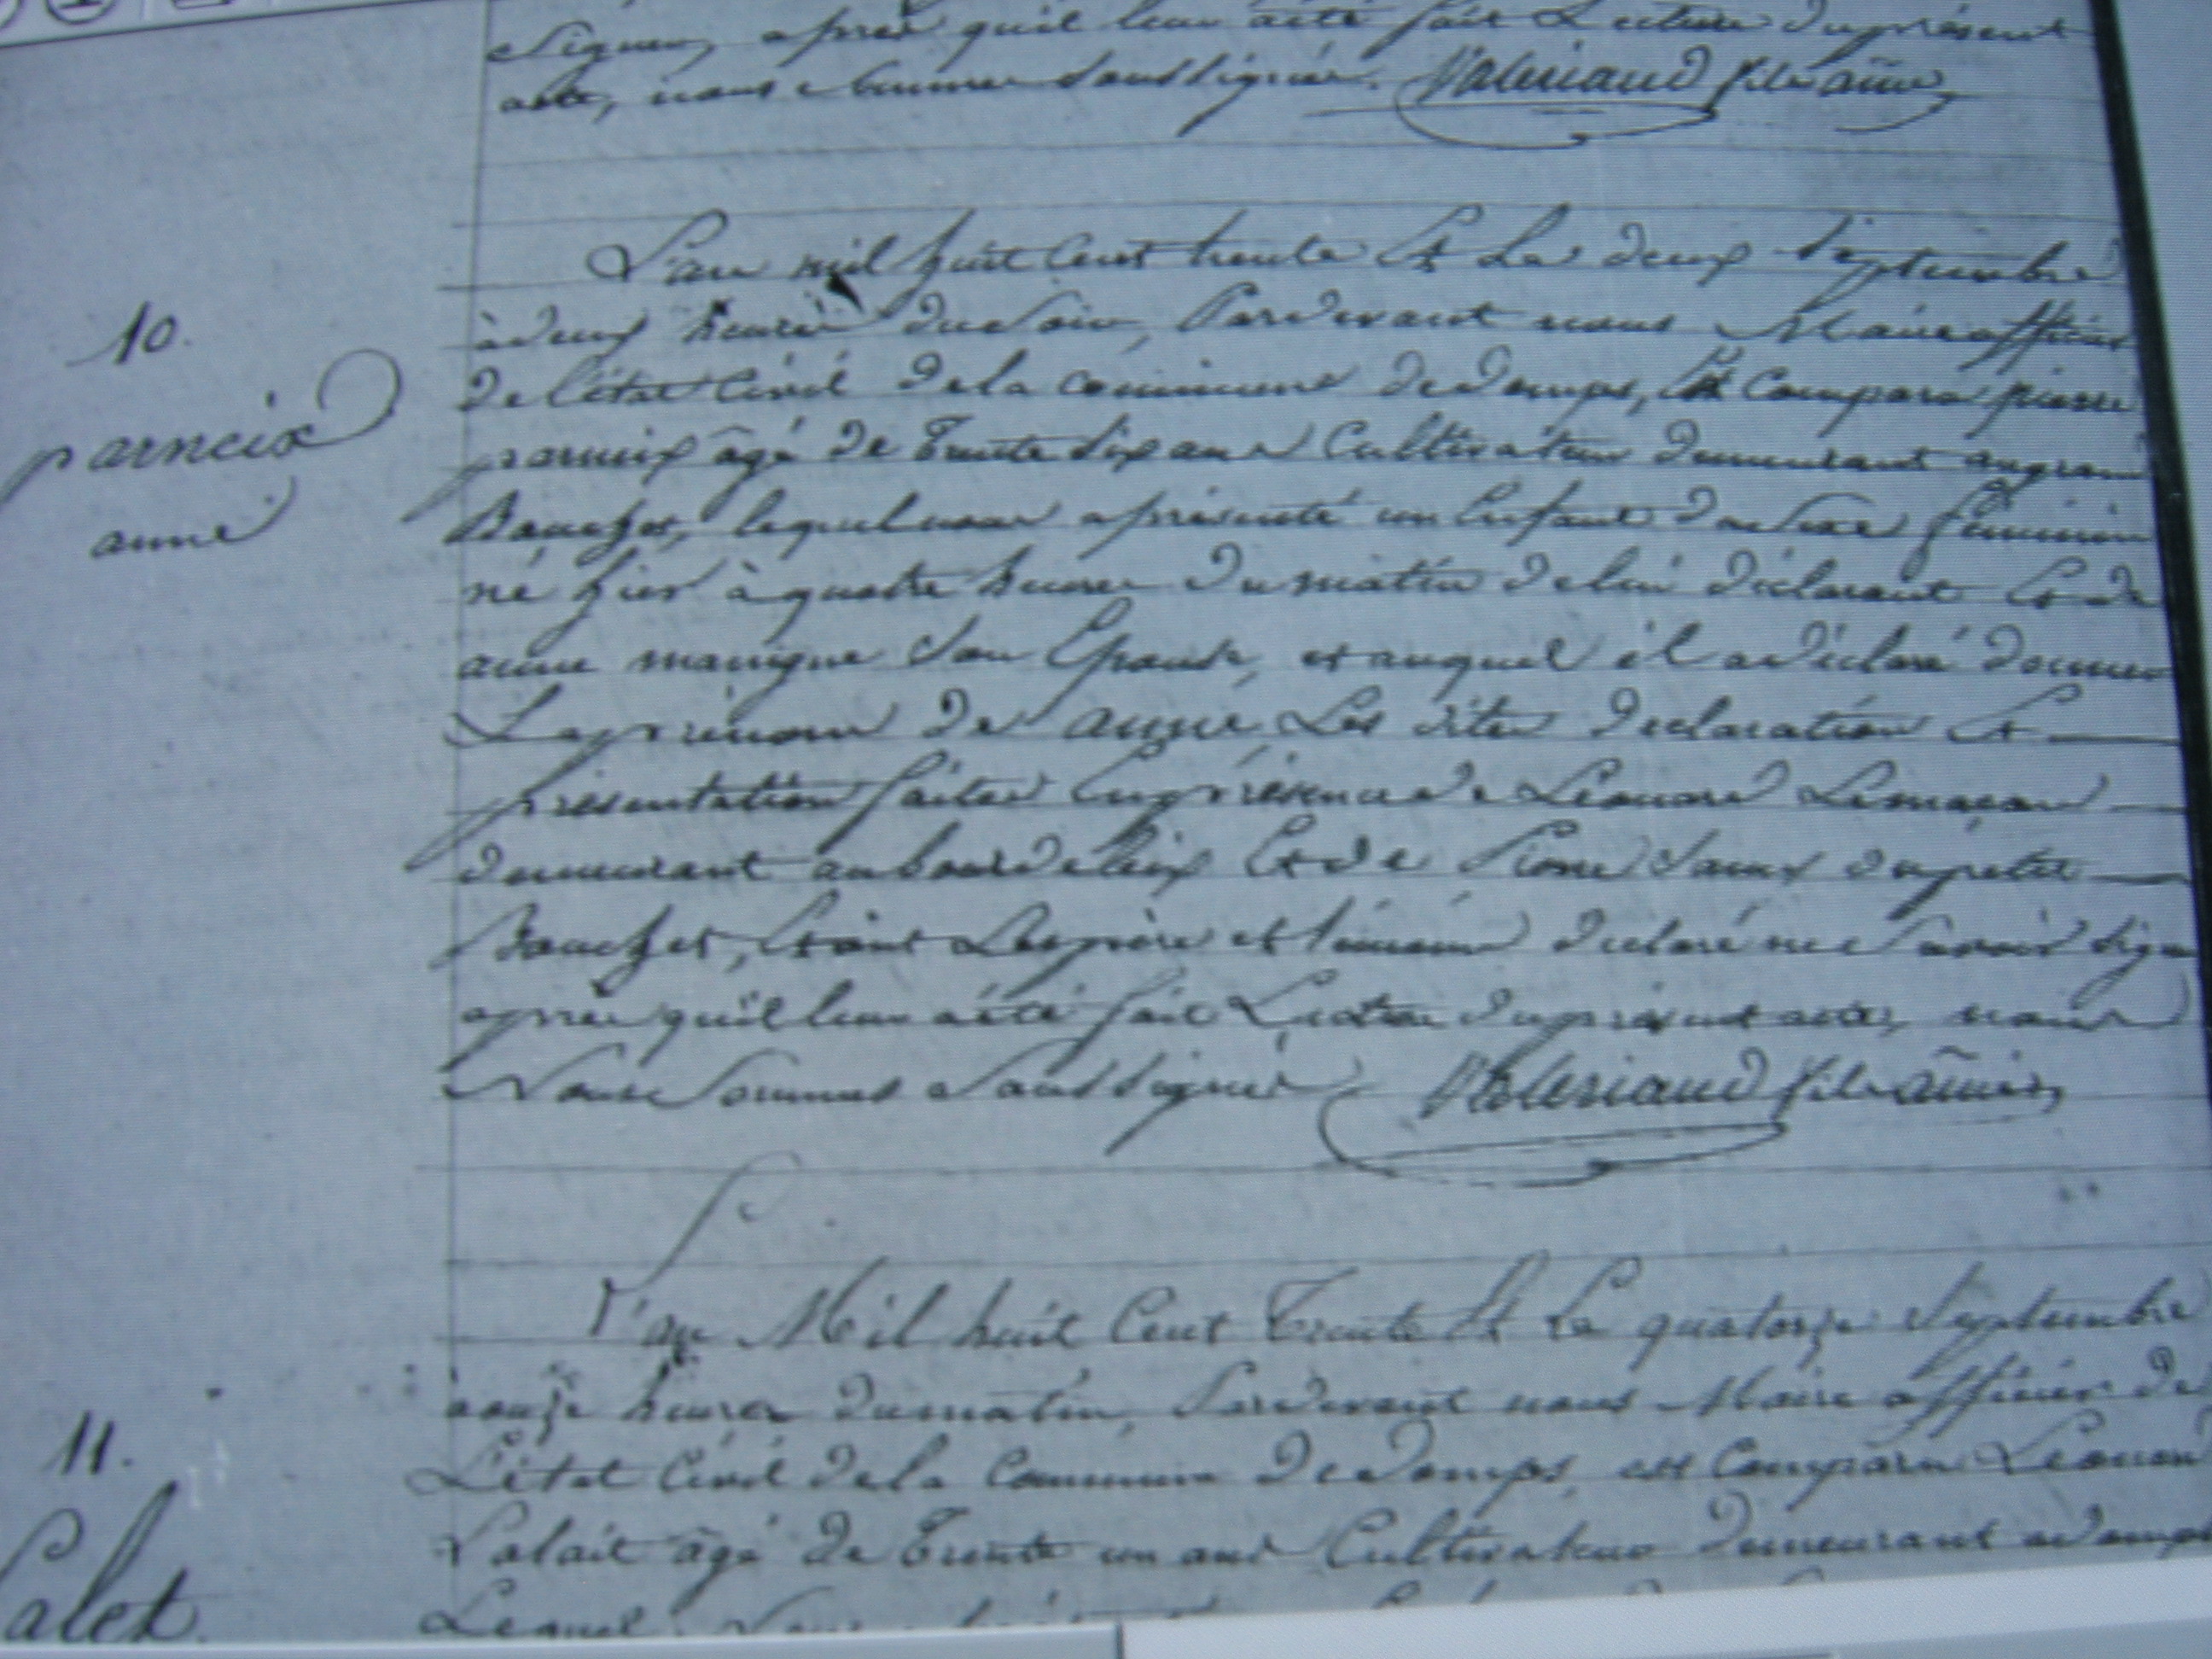 signer, après quil leur a été fait Lecture du present
acte, nous sommes soussignés. Valeriaud fils ainé
L'an mil huit Cent trente Et Le deux Septembre
à deux heures du Soir, Pardevant nous Maire officier
10.
de l'état Civil de la commune de domps, Est Comparu pierre
parneix
parneix âgé de Trente Six ans Cultivateur demeurant au grand
anne
Bouchet, lequel nous a présenté un Enfant du Sexe féminin
né hier à quatre heures du matin de lui déclarant Et de
anne manigne Son Epouse, et auquel il a déclaré donner
Le prénom de anne Les dites déclaration Et
présentation faites En présence de Léonard
demeurant au bourg Et de Pierre du petit
Bouchet, Et ont Les père et témoins déclaré ne Savoir Signer
après quil leur a été fait Lecture du présent acte, nous
Nous Sommes Soussigné Valeriaud fils ainé
L'an Mil huit Cent Trente Et Le quatorze Septembre
à onze heures du matin, Pardevant nous Maire officier de
11.
L'état Civil de la Commune de domps, est Comparu Léonard
Lalait âgé de Trente un ans Cultivateur demeurant a domps
Lalet
Lequel Nous